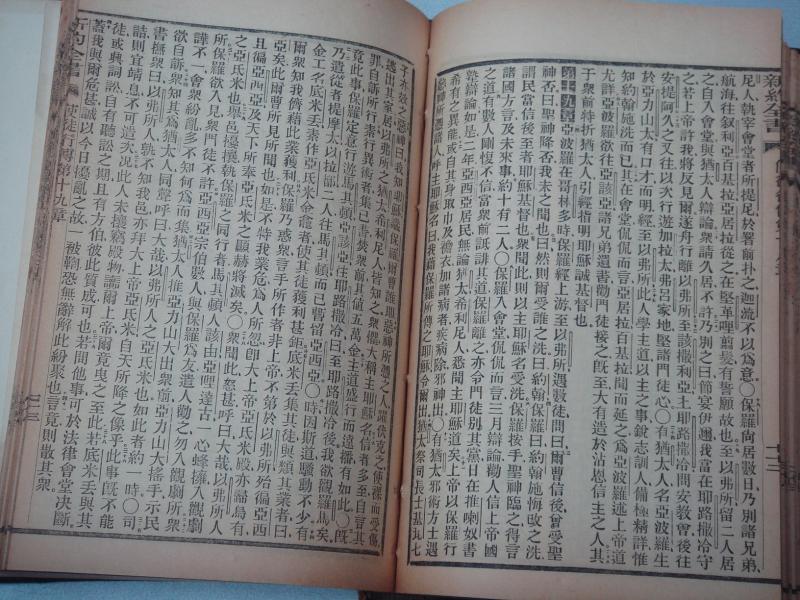 足尼人執宰會堂者所提尼於署前扑之迦流不以爲意○保羅尚居數日乃別諸兄弟
航海往叙利亞百基拉亞居拉從之在堅革哩翦髮有誓願故也至以弗所留二人居
之自入會堂與猶太人辯論衆請久居不許乃別之曰節宴伊邇我當在耶路撒冷守
之若上帝許我將反見爾遂舟行離以弗所至該撒利亞上耶路撒冷問安教會後往
安提阿久之又往以次行遊加拉太弗呂家地堅諸門徒心○有猶太人名亞波羅生
於亞力山太有口才而明經至以弗所此人學主道以主之事銳志訓人備極精詳惟
知約翰施洗而已其在會堂侃侃而言亞居拉百基拉聞而延之爲亞波羅述上帝道
尤詳亞波羅欲往亞該亞諸兄弟遺書勸門徒接之旣至大有造於沾恩信主之人其
于衆前特折猶太人引經指明耶穌誠基督也
第十九章亞波羅在哥林多時保羅經上游至以弗所遇數徒問曰爾曹信後曾受聖
神否曰聖神降否我未之聞也曰然則爾受誰之洗曰約翰保羅曰約翰施悔改之洗
謂民當信後至者耶穌基督也衆聞此則以主耶穌名受洗保羅按手聖神臨之得言
諸國方言及未來事約十有二人○保羅入會堂侃侃而言三月辯論勸人信上帝國
之道有數人剛愎不信當衆前誹其道保羅離之亦令門徒別其黨日在推喇奴書
塾辯論如是二年亞西亞居民無論猶太希利尼人悉聞主耶穌道矣上帝以保羅行
希有之異能或自其身取巾及襜衣加諸病者疾病除邪神出○有猶太邪術方士遇
惡神憑者呼主耶穌名曰我藉保羅所傳之耶穌令爾出有猶太祭司長士基瓦七
新約全書
子亦效之惡神曰我知耶穌識保羅爾曹誰耶惡神所憑之人躍伏克之使裸而受傷
逃出其家居以弗所之猶太希利尼人皆知之衆懼大稱主耶穌名信者多至自言其
罪自訴所行素行異術者集已書焚衆前其値五萬金主道盛行而遠播有如此○旣
竟此事保羅定意行遊馬其頓亞該亞往耶路撒冷曰至耶路撒冷後我欲觀羅馬矣
乃遣從者提摩太以拉都二人往馬其頓而已暫留亞西亞○時因斯道騷動不少有
金工名底米丢素作亞氏米金龕者使其徒獲利甚鉅底米丢集其徒與類其業者曰
爾衆知我儕藉此業獲利保羅乃惑衆言手所作者非上帝不第於以弗所殆徧亞西
亞矣此爾曹所見所聞也如是不特我業危爲人所忽卽大上帝亞氏米殿亦歸烏有
且徧亞西亞及天下所奉亞氏米之顯赫將滅矣○衆聞此怒甚呼曰大哉以弗所人
之亞氏米也舉邑擾攘執保羅之同行者馬其頓人該由亞哩達古一心蜂擁入觀劇
所保羅欲入見衆門徒不許亞西亞宗伯數人與保羅爲友遣人勸之勿入觀劇所衆
譁不一會衆紛亂多不知何爲而集猶太人推亞力山大出衆前亞力山大搖手示民
欲自訴衆知其爲猶太人同聲呼曰大哉以弗所人之亞氏米也如此者約一時○司
書撫衆曰以弗所人乎孰不知我邑亦拜大上帝亞氏米自天所降之像乎此事旣不能
詰則宜靖息不可造次況此人未攘竊殿物讟爾上帝爾竟曳之至此若底米丢與其
徒或與詞訟自有聽訟之期且有方伯彼此質成可也若問他事可於法律會堂決斷
蓋我與爾危甚誠以今日擾亂之故一被鞫恐無辭解此紛聚也言竟則散其衆
新約全書
使徒行傳第十九章